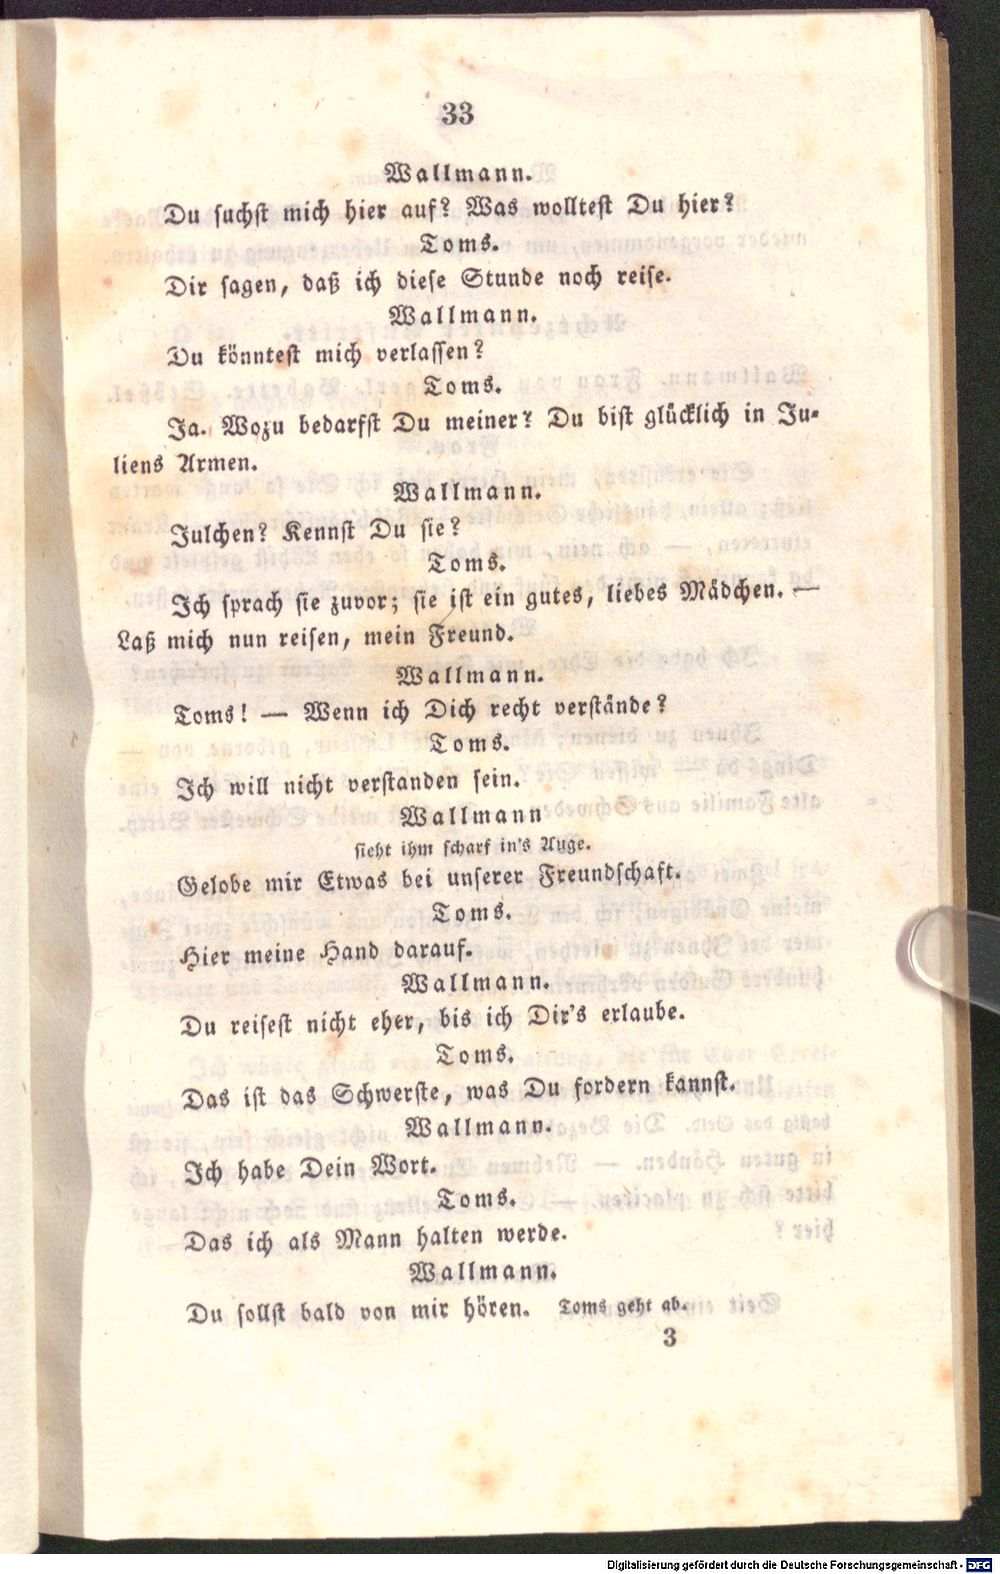 33
Wallmann.
Du suchst mich hier auf? Was wolltest Du hier?
Toms.
Dir sagen, daß ich diese Stunde noch reise.
Wallmann.
Du könntest mich verlassen?
Toms.
Ja. Wozu bedarfst Du meiner? Du bist glücklich in Ju-
liens Armen.
Wallmann.
Julchen? Kennst Du sie?
Toms.
Ich sprach sie zuvor; sie ist ein gutes, liebes Mädchen. —
Laß mich nun reisen, mein Freund.
Wallmann.
Toms! — Wenn ich Dich recht verstände?
Toms.
Ich will nicht verstanden sein.
Wallmann
sieht ihm scharf in's Auge.
Gelobe mir Etwas bei unserer Freundschaft.
Toms.
Hier meine Hand darauf.
Wallmann.
Du reisest nicht eher, bis ich Dir's erlaube.
Toms.
Das ist das Schwerste, was Du fordern kannst.
Wallmann.
Ich habe Dein Wort.
Toms.
Das ich als Mann halten werde.
Wallmann.
Du sollst bald von mir hören. Toms geht ab.
3
Digitalisierung gefördert durch die Deutsche Forschungsgemeinschaft - DFG